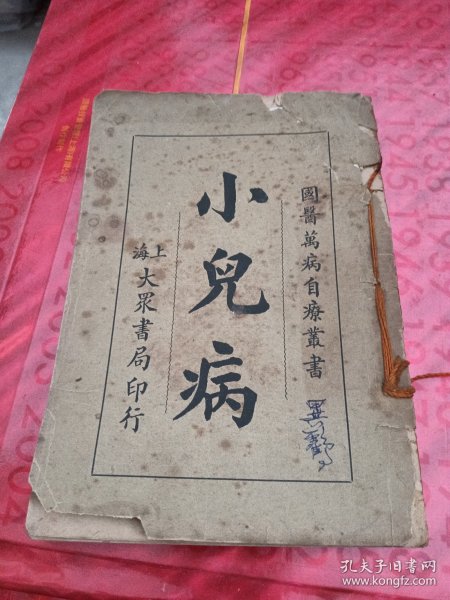 國醫萬病自療叢書
小兒病
上海大眾書局印行
孔夫子旧书网
www.kongfz.com